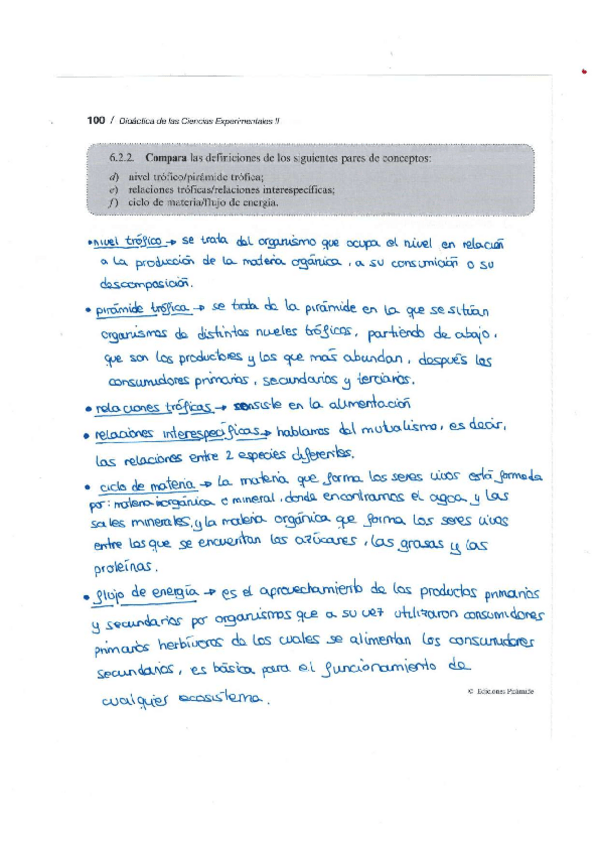 100 / Didáctica de las Ciencias Experimentales II
6.2.2. Compara las definiciones de los siguientes pares de conceptos:
d) nivel trófico/pirámide trófica;
e) relaciones tróficas/relaciones interespecíficas;
f) ciclo de materia/flujo de energía.
• nivel trófico → se trata del organismo que ocupa el nivel en relación
a la producción de la materia orgánica, a su consumición o su
descomposición.
• pirámide trófica → se trata de la pirámide en la que se sitúan
organismos de distintos niveles tróficos, partiendo de abajo,
que son los productores y los que más abundan, después los
consumidores primarios, secundarios y terciarios.
• relaciones tróficas → consiste en la alimentación
• relaciones interespecíficas → hablamos del mutualismo, es decir,
las relaciones entre 2 especies diferentes.
• ciclo de materia → la materia que forma los seres vivos está formada
por: materia inorgánica o mineral, donde encontramos el agua y las
sales minerales, y la materia orgánica que forma los seres vivos
entre los que se encuentan los azúcares, las grasas y las
proteínas.
• flujo de energía → es el aprovechamiento de los productos primarios
y secundarios por organismos que a su vez utilizaron consumidores
primarios herbívoros de los cuales se alimentan los consumidores
secundarios, es básica para el funcionamiento de
cualquier ecosistema.
© Ediciones Pirámide